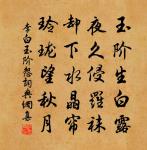 玉阶生白露
夜久侵羅袜
却下水晶帘
玲瓏望秋月
李白玉阶怨詞典網集